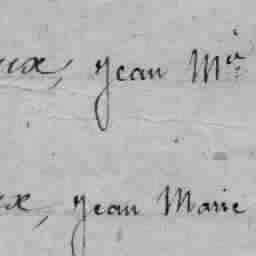 Jean M^ie
Jean Marie